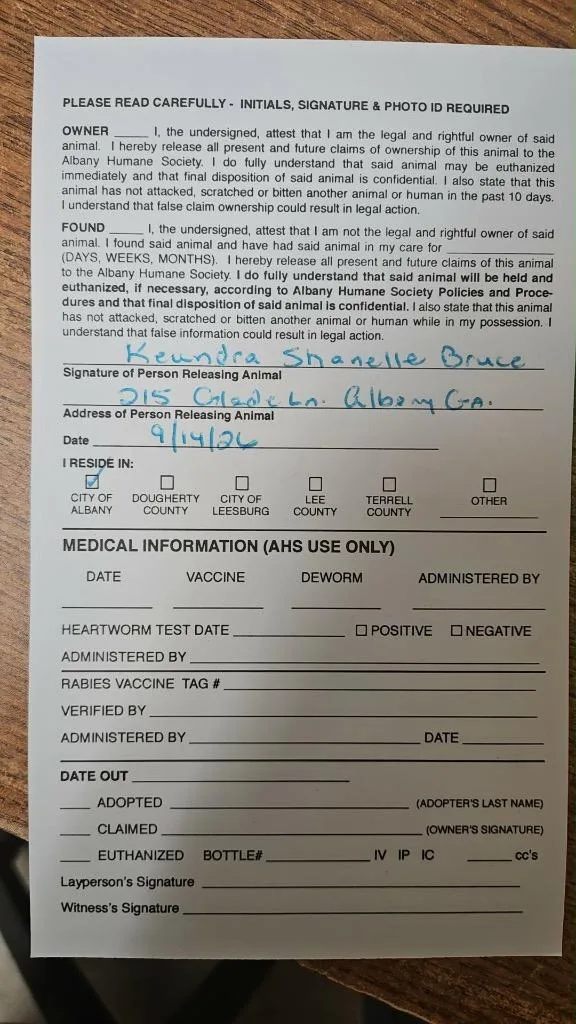 PLEASE READ CAREFULLY - INITIALS, SIGNATURE & PHOTO ID REQUIRED
OWNER _____ I, the undersigned, attest that I am the legal and rightful owner of said
animal. I hereby release all present and future claims of ownership of this animal to the
Albany Humane Society. I do fully understand that said animal may be euthanized
immediately and that final disposition of said animal is confidential. I also state that this
animal has not attacked, scratched or bitten another animal or human in the past 10 days.
I understand that false claim ownership could result in legal action.
FOUND _____ I, the undersigned, attest that I am not the legal and rightful owner of said
animal. I found said animal and have had said animal in my care for _____
(DAYS, WEEKS, MONTHS). I hereby release all present and future claims of this animal
to the Albany Humane Society. I do fully understand that said animal will be held and
euthanized, if necessary, according to Albany Humane Society Policies and Proce-
dures and that final disposition of said animal is confidential. I also state that this animal
has not attacked, scratched or bitten another animal or human while in my possession. I
understand that false information could result in legal action.
Keundra Shanelle Bruce
Signature of Person Releasing Animal
215 Glade Ln. Albany GA.
Address of Person Releasing Animal
Date 9/14/26
I RESIDE IN:
☑ ☐ ☐ ☐ ☐ ☐
CITY OF DOUGHERTY CITY OF LEE TERRELL OTHER
ALBANY COUNTY LEESBURG COUNTY COUNTY _____
MEDICAL INFORMATION (AHS USE ONLY)
DATE VACCINE DEWORM ADMINISTERED BY
HEARTWORM TEST DATE _____ ☐ POSITIVE ☐ NEGATIVE
ADMINISTERED BY _____
RABIES VACCINE TAG # _____
VERIFIED BY _____
ADMINISTERED BY _____ DATE _____
DATE OUT _____
____ ADOPTED _____ (ADOPTER'S LAST NAME)
____ CLAIMED _____ (OWNER'S SIGNATURE)
____ EUTHANIZED BOTTLE# _____ IV IP IC _____ cc's
Layperson's Signature _____
Witness's Signature _____